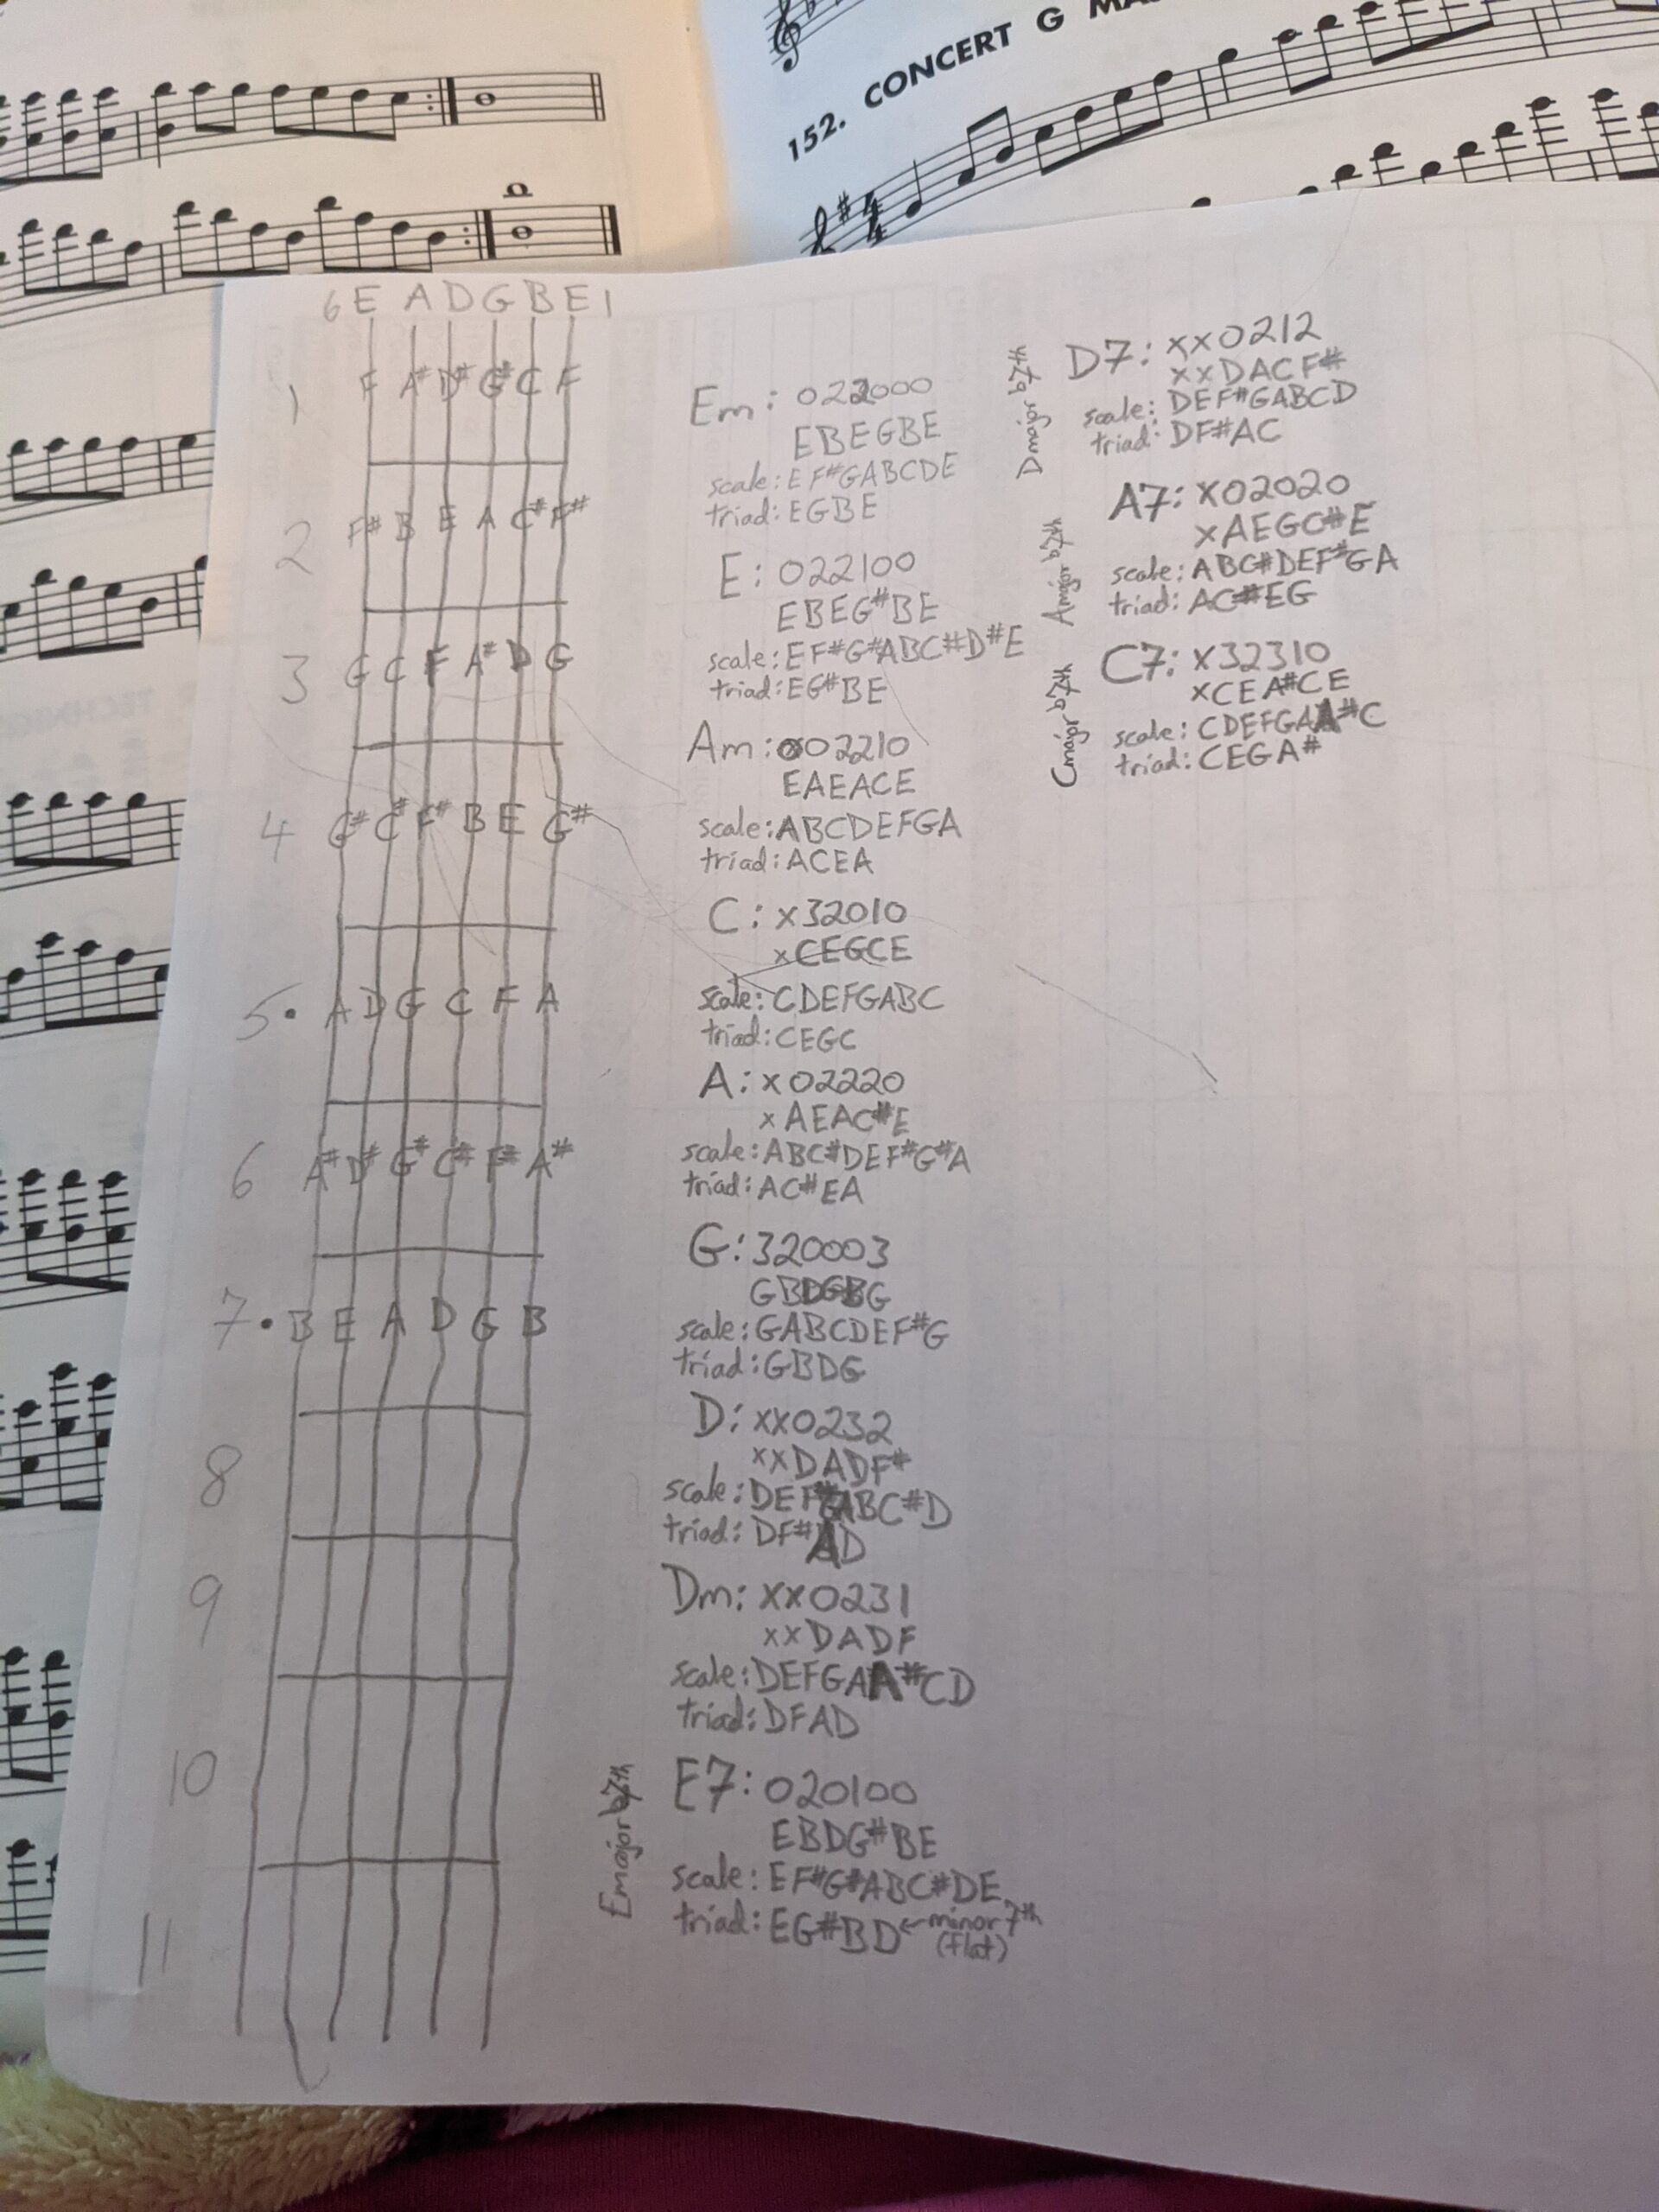 152. CONCERT G MA
6 E A D G B E 1
1 F A# D# G# C F
2 F# B E A C# F#
3 G C F A# D G
4 G# C# F# B E G#
5 • A D G C F A
6 A# D# G# C# F# A#
7 • B E A D G B
8
9
10
11
Em: 022000
EBEGBE
scale: EF#GABCDE
triad: EGBE
E: 022100
EBEG#BE
scale: EF#G#ABC#D#E
triad: EG#BE
Am: 002210
EAEACE
scale: ABCDEFGA
triad: ACEA
C: x32010
xCEGCE
scale: CDEFGABC
triad: CEGC
A: x02220
xAEAC#E
scale: ABC#DEF#G#A
triad: AC#EA
G: 320003
GBDGBG
scale: GABCDEF#G
triad: GBDG
D: xx0232
xxDADF#
scale: DEF#GABC#D
triad: DF#AD
Dm: xx0231
xxDADF
scale: DEFGAA#CD
triad: DFAD
Emajor b7th
E7: 020100
EBDG#BE
scale: EF#G#ABC#DE
triad: EG#BD ← minor 7th
(flat)
Dmajor b7th
D7: xx0212
xxDACF#
scale: DEF#GABCD
triad: DF#AC
Amajor b7th
A7: x02020
xAEGC#E
scale: ABC#DEF#GA
triad: AC#EG
Cmajor b7th
C7: x32310
xCEA#CE
scale: CDEFGAA#C
triad: CEGA#